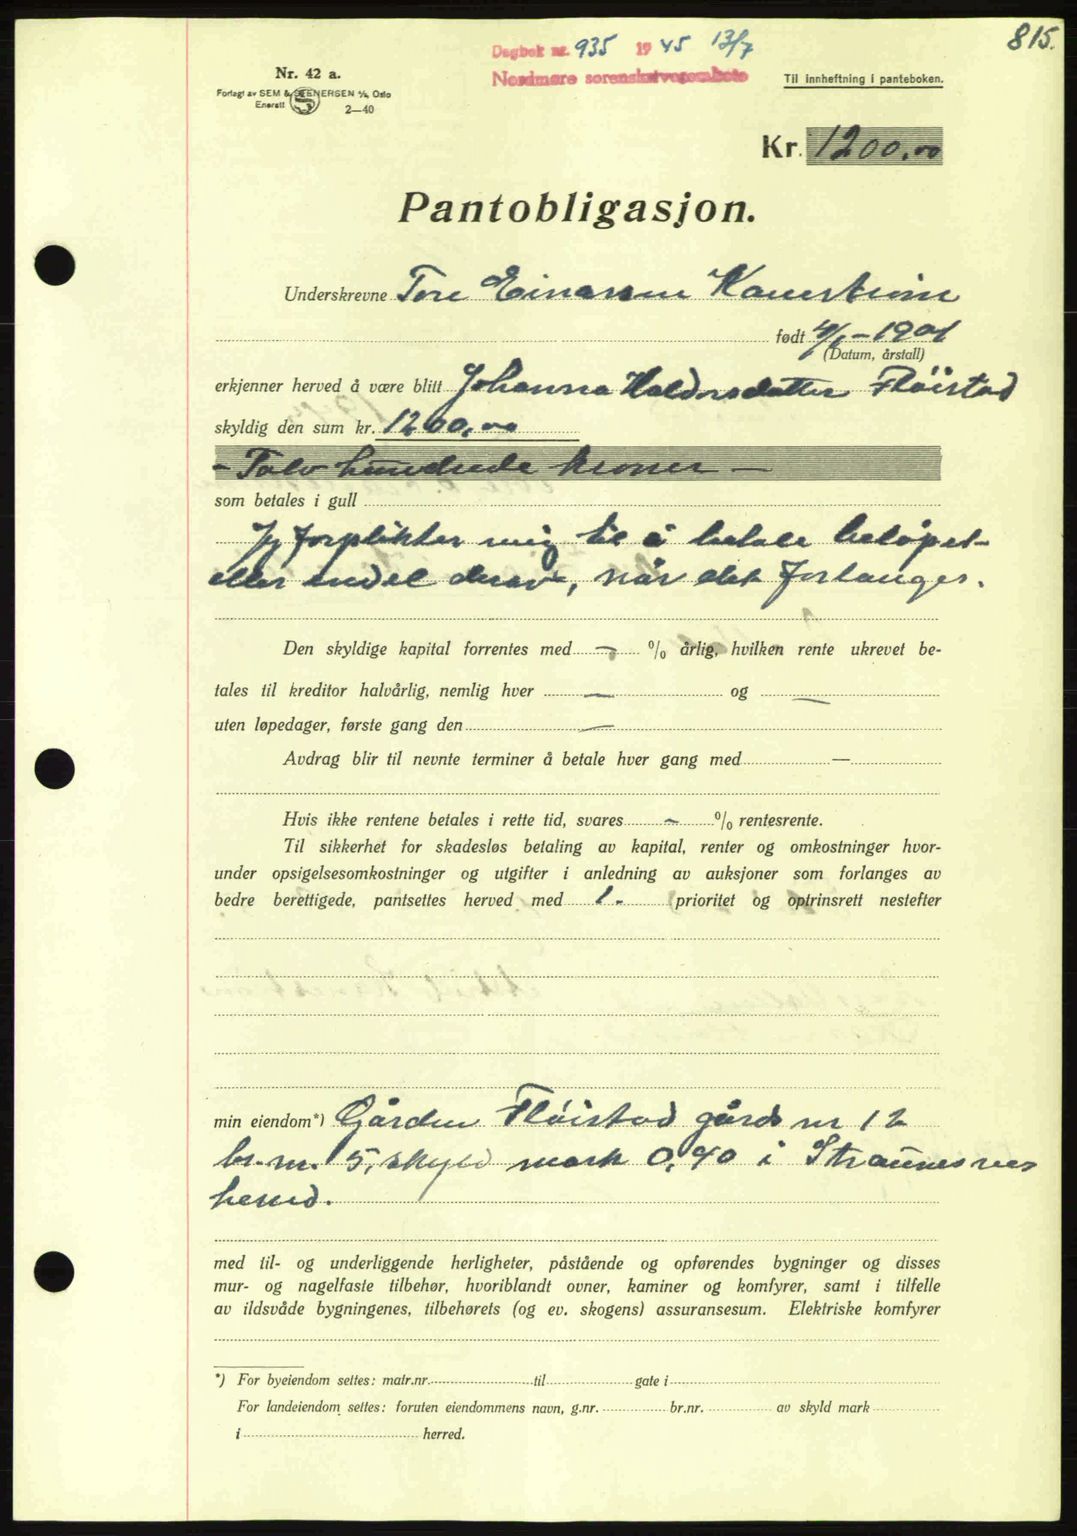 815.
Dagbok nr. 935 1945 13/7
Nordmøre sorenskriverembete
Nr. 42 a.
Forlagt av SEM & STENERSEN A/S, Oslo
Enerett S 2—40
Til innheftning i panteboken.
Kr. 1200,00
Pantobligasjon.
Underskrevne Tore Einarsen
født 4/1-1901
(Datum, årstall)
erkjenner herved å være blitt Johanna Haldorsdatter Fløistad
skyldig den sum kr. 1200,00
- Tolv hundrede kroner -
som betales i gull
Jeg forplikter mig til å betale beløpet
eller endel derav, når det forlanges.
Den skyldige kapital forrentes med - % årlig, hvilken rente ukrevet be-
tales til kreditor halvårlig, nemlig hver — og —
uten løpedager, første gang den —
Avdrag blir til nevnte terminer å betale hver gang med —
Hvis ikke rentene betales i rette tid, svares - % rentesrente.
Til sikkerhet for skadesløs betaling av kapital, renter og omkostninger hvor-
under opsigelsesomkostninger og utgifter i anledning av auksjoner som forlanges av
bedre berettigede, pantsettes herved med 1. prioritet og optrinsrett nestefter
min eiendom*) Gården Fløistad gårds nr 12
br.nr. 5, skyld mark 0,40 i Straumsnes
herred.
med til- og underliggende herligheter, påstående og opførendes bygninger og disses
mur- og nagelfaste tilbehør, hvoriblandt ovner, kaminer og komfyrer, samt i tilfelle
av ildsvåde bygningenes, tilbehørets (og ev. skogens) assuransesum. Elektriske komfyrer
*) For byeiendom settes: matr.nr. til gate i
For landeiendom settes: foruten eiendommens navn, g.nr. br.nr. av skyld mark
i herred.